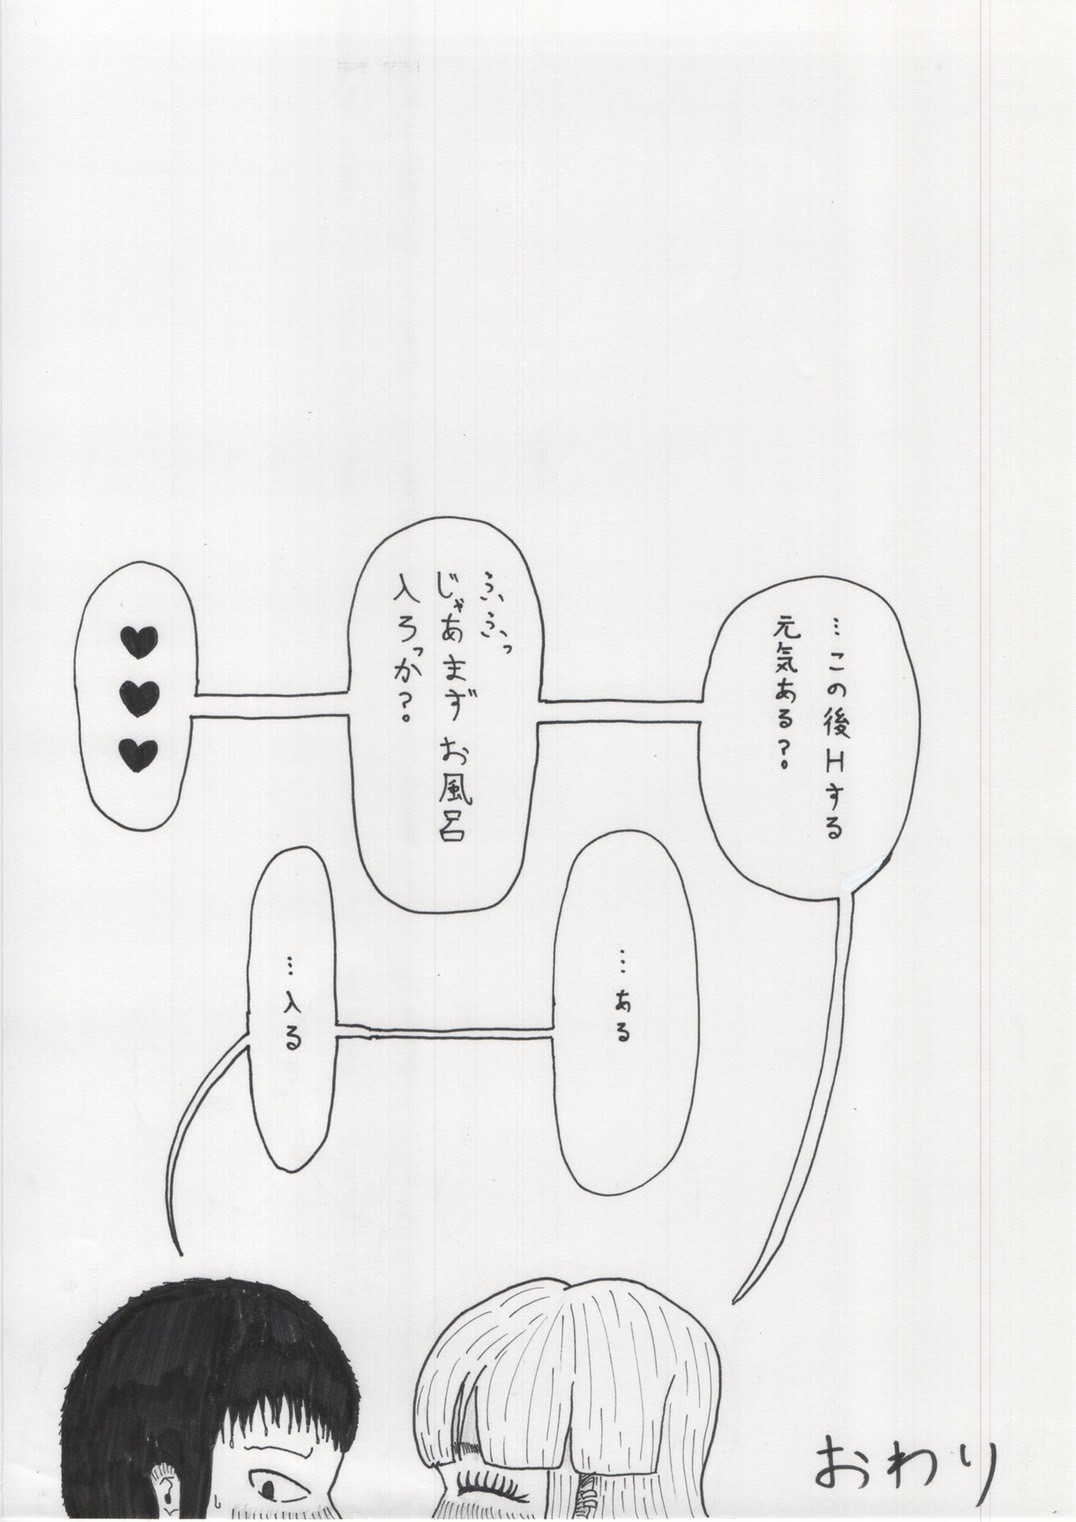 …この後Hする
元気ある?。
…ある
ふふっ
じゃあまずお風呂
入ろっか?。
…入る
♥♥♥
おわり